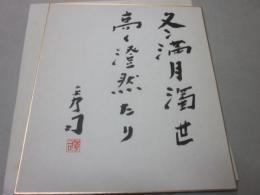 冬満月濁世
高く澄然たり